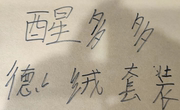 醒多多
德绒套装